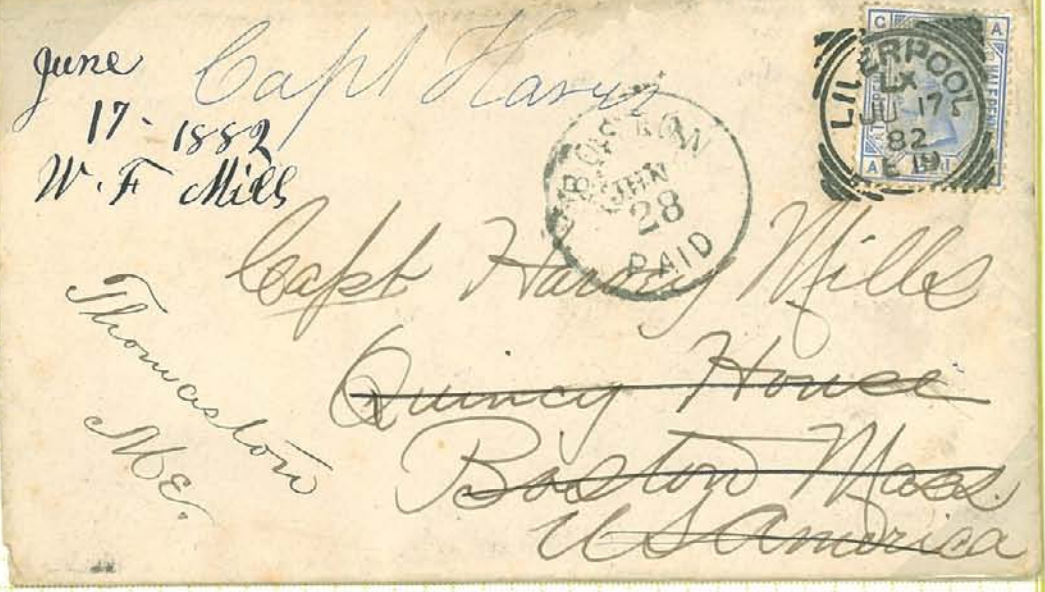 June
17 - 1882
W. F Mills
Capt Harvy
LIVERPOOL
LX
JU 17
82
E 19
C A
A
BOSTON
JUN
28
PAID
Capt Harvy Mills
Quincy House
Boston Mass.
US America
Thomaston
ME.